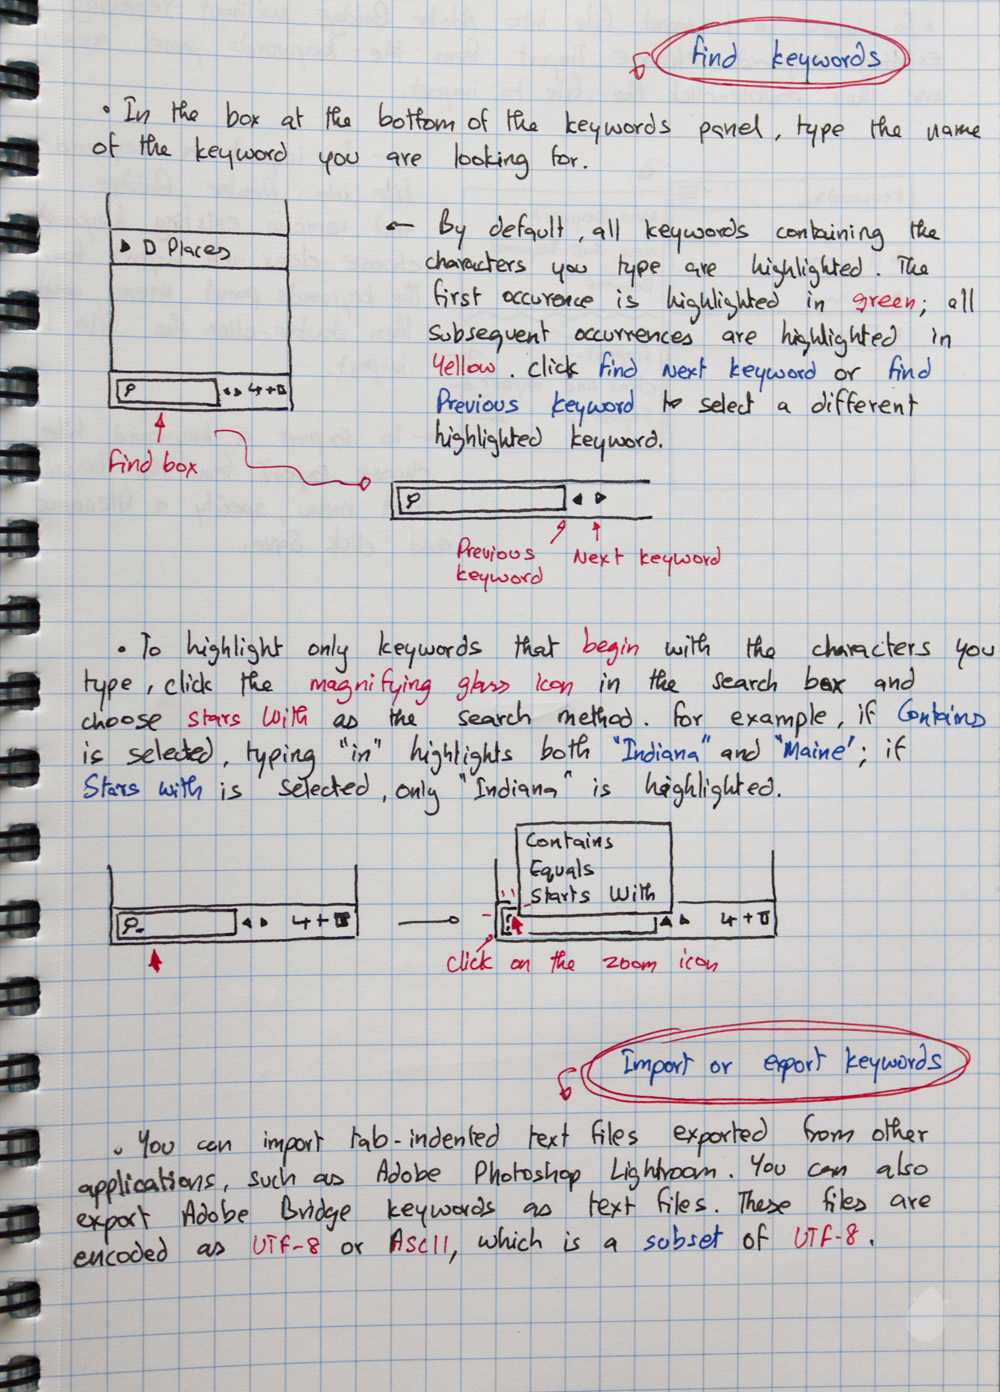 find keywords
• In the box at the bottom of the keywords panel, type the name
of the keyword you are looking for.
D Places
← By default, all keywords containing the
characters you type are highlighted. The
first occurence is highlighted in green; all
subsequent occurrences are highlighted in
Yellow. click find Next keyword or find
Previous keyword to select a different
highlighted keyword.
find box
Previous
keyword
Next keyword
• To highlight only keywords that begin with the characters you
type, click the magnifying glass icon in the search box and
choose stars with as the search method. for example, if Contains
is selected, typing "in" highlights both "Indiana" and "Maine'; if
Stars with is selected, only "Indiana" is highlighted.
Contains
Equals
Starts With
click on the zoom icon
Import or export keywords
• You can import tab-indented text files exported from other
applications, such as Adobe Photoshop Lightroom. You can also
export Adobe Bridge keywords as text files. These files are
encoded as UTF-8 or ASCII, which is a subset of UTF-8.